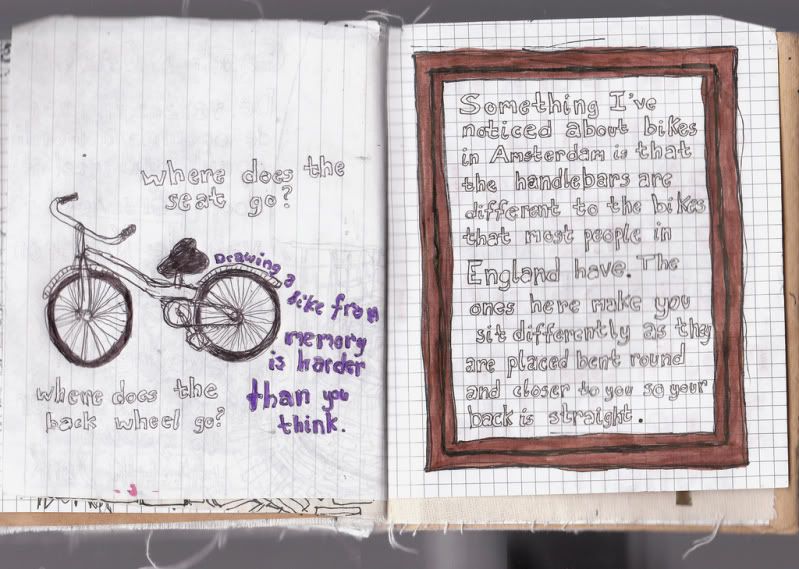 where does the
seat go?
Drawing a
bike from
memory
is harder
than you
think.
where does the
back wheel go?
Something I've
noticed about bikes
in Amsterdam is that
the handlebars are
different to the bikes
that most people in
England have. The
ones here make you
sit differently as they
are placed bent round
and closer to you so your
back is straight.